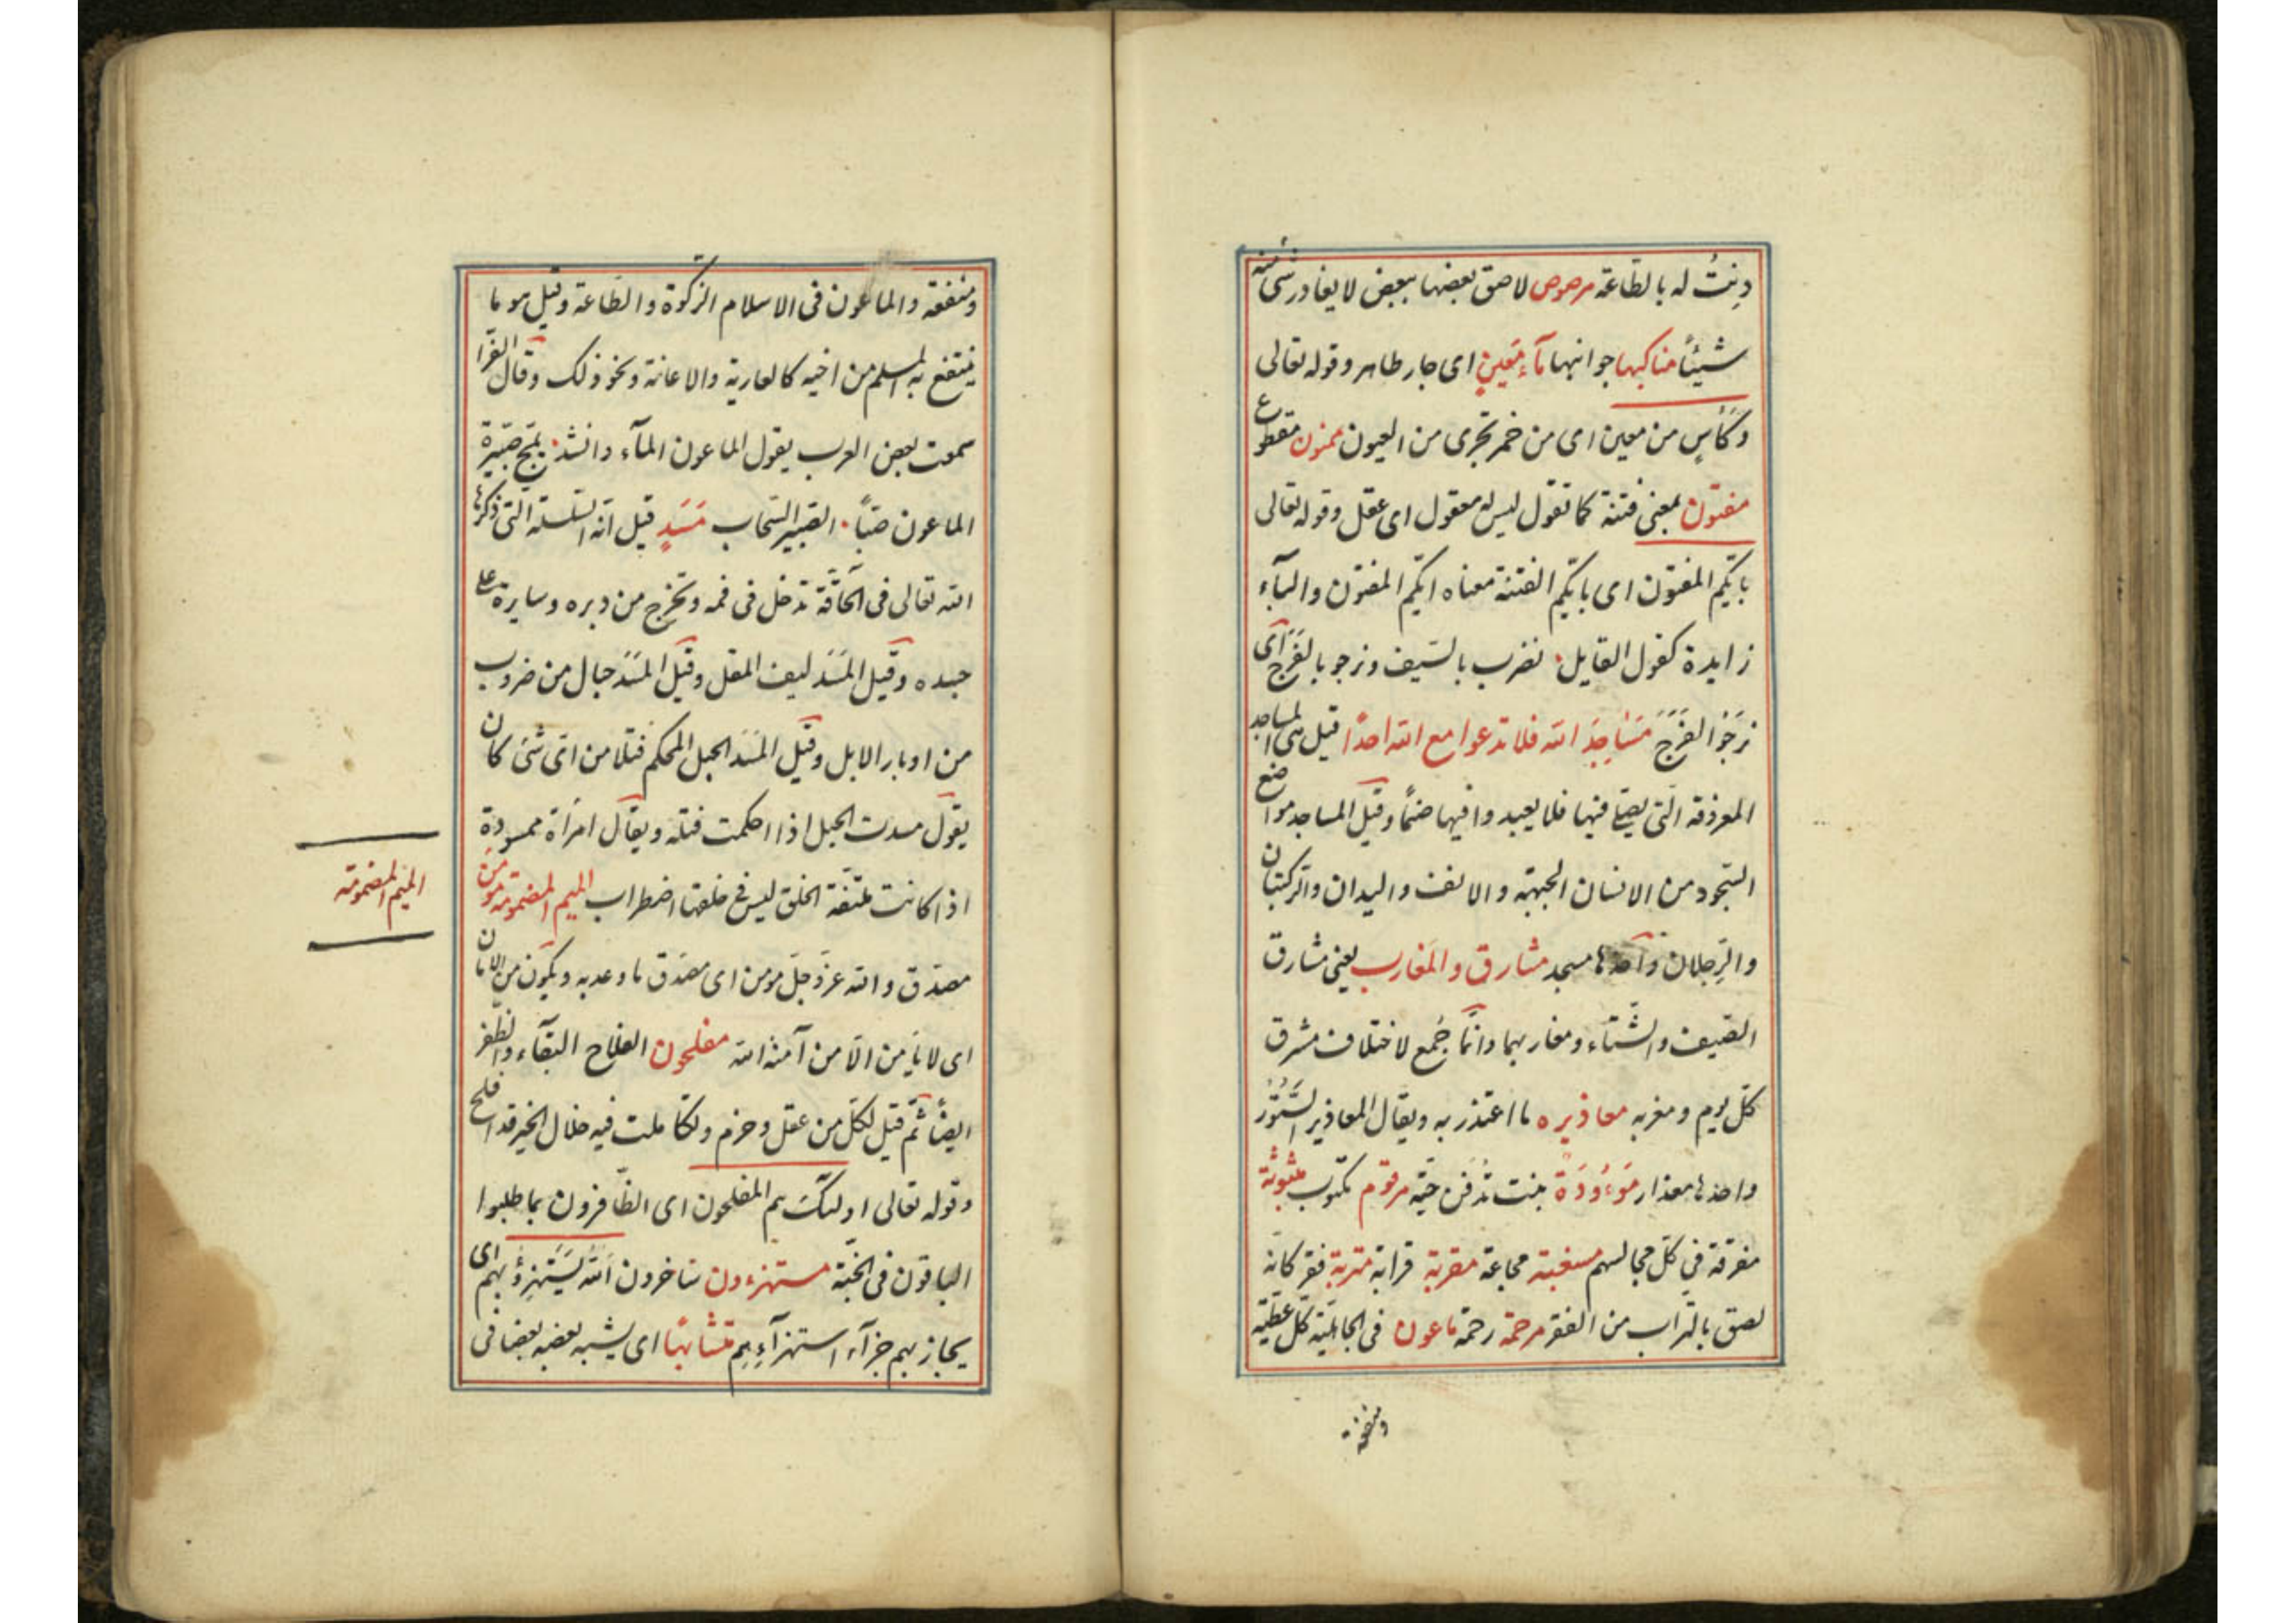 دِنتُ له بالطّاعة مرصوص لاصق بعضها ببعض لا يغادر شئ منه
شيئًا مناكبها جوانبها مآء مَعينٍ اى جار طاهر وقوله تعالى
وكَأسٍ من معين اى من خمر تجرى من العيون ممنون مقطوع
مفتون بمعنى فتنة كما تقول ليس له معقول اى عقل وقوله تعالى
بايّكم المفتون اى بايّكم الفتنة معناه ايّكم المفتون والبآء
زايدة كقول القايل نضرب بالسّيف ونرجو بالفَرَج اى
نَرجُو الفَرَجَ مَسَاجِدَ الله فلا تدعوا مع الله احدًا قيل هى المساجد
المعروفة الّتى يصلّى فيها فلا يعبدوا فيها صنمًا وقيل المساجد مواضع
السّجود من الانسان الجبهة والانف واليدان والرّكبتان
والرِّجلان واحدها مسجد مشارق والمَغارب يعنى مشارق
الصّيف والشّتاء ومغاربهما وانّما جُمع لاختلاف مشرق
كلّ يوم ومغربه معاذيره ما اعتذر به ويقال المعاذير السُّتُوْر
واحدها معذار مَوْءُودَة بنت تُدفن حيّة مرقوم مكتوب مبثوثة
مفرّقة في كلّ مجالسهم مسغبة مجاعة مقربة قرابة متربة فقر كانّه
لصق بالتّراب من الفقر مرحمة رحمة ماعون فى الجاهليّة كلّ عطيّة
ومنفعة
ومنفعة والماعون فى الاسلام الزكوة والطّاعة وقيل هو ما
ينتفع به المسلم من اخيه كالعارية والاعانة ونحو ذلك وقال الفرّا
سمعت بعض العرب يقول الماعون المآء وانشد يمجّ صَبيرة
الماعون صَبّاً الصّبير السّحاب مَسَدٍ قيل انّه السّلسلة الّتى ذكرها
الله تعالى فى الحَآقّة تدخل فى فمه وتخرج من دبره وسايرة على
جسده وقيل المَسَد ليف المقل وقيل المَسَد حبال من ضروب
من اوبار الابل وقيل المَسَد الحبل المحكم فتلا من اىّ شئ كان
يقول مسدت الحبل اذا احكمت فتله ويقال امراة ممسودة
اذا كانت ملتفّة الخلق ليس فى خلقها اضطراب الميم المضمومة مومن
الميم المضمومة
مصدّق والله عزّ وجلّ مومن اى مصدّق ما وعد به ويكون من الامان
اى لا يَأمن الّا من آمنه الله مفلحون الفلاح البقآء والظّفر
ايضًا ثمّ قيل لكلّ من عقل وحزم وتكاملت فيه خلال الخير قد افلح
وقوله تعالى اولئك هم المفلحون اى الظّافرون بما طلبوا
الباقون فى الجنّة مستهزءون ساخرون الله يَسْتَهزِؤُ بهم اى
يجازيهم جزآء استهزآءِهِم متشابهًا اى يشبه بعضه بعضا فى